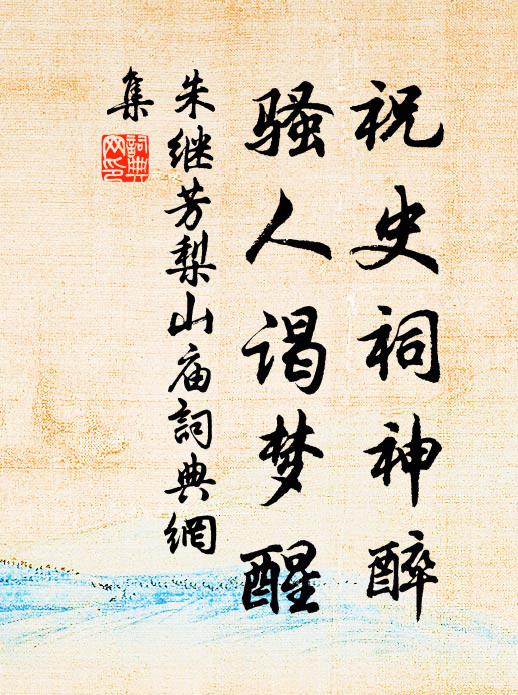 祝史祠神醉
骚人谒梦醒
朱继芳梨山庙詞典網
集
詞典网印